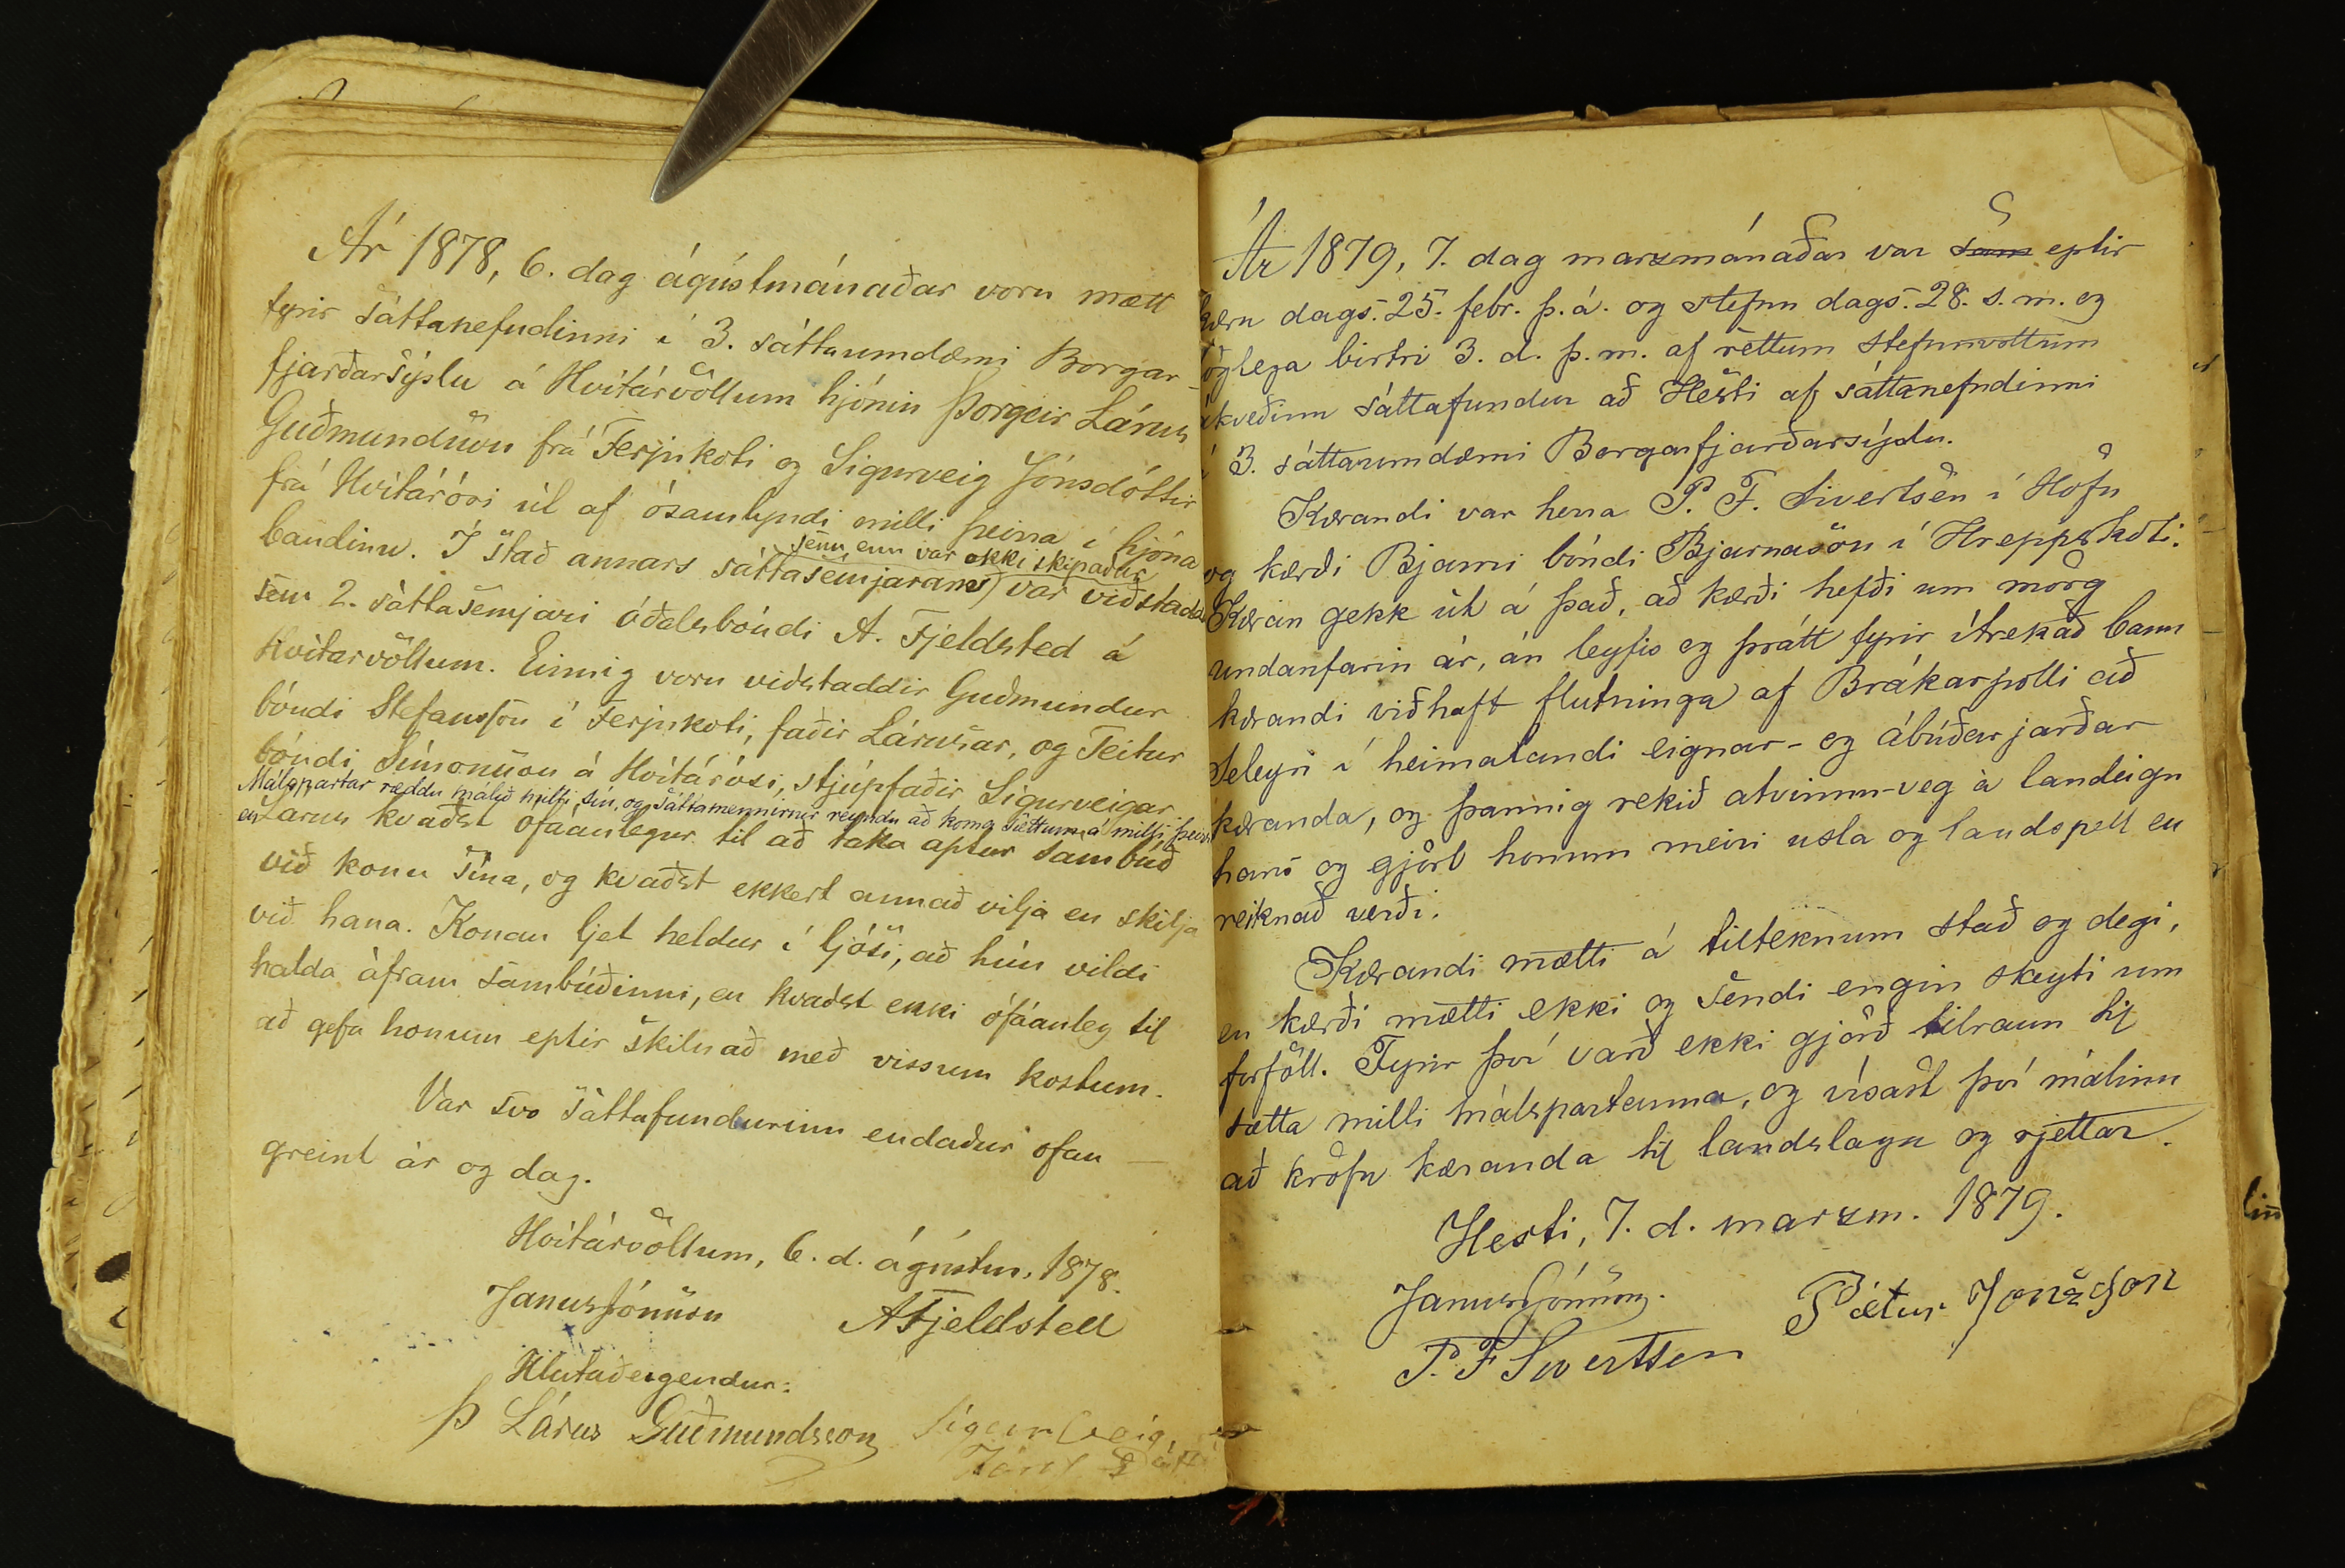 Ár 1878, 6. dag ágústmánaðar voru mætt
fyrir sáttanefndinni í 3. sáttaumdæmi Borgar-
fjarðarsýslu á Hvítárvöllum hjónin Þorgeir Lárus
Guðmundsson frá Ferjukoti og Sigurveig Jónsdóttir
frá Hvítárósi út af ósamlyndi milli þeirra í hjóna
bandinu. Í stað annars sáttasemjarans, var viðstaddur
sem enn var ekki skipaður
sem 2. sáttasemjari óðalsbóndi A. Fjeldsted á
Hvítarvöllum. Einnig voru viðstaddir Guðmundur
bóndi Stefansson í Ferjukoti, faðir Lárusar, og Teitur
bóndi Símonsson á Hvítárósi, stjúpfaðir Sigurveigar
Málspartar ræddu málið hjilfi sín, og sáttamennirnir reyndu að koma sættum á milli þeirra
en Lárus kvaðst ófáanlegur til að taka aptur sambúð
við konu sína, og kvaðst ekkert annað vilja en skilja
við hana. Konan ljet heldur í ljósi, að hún vildi
halda áfram sambúðinni, en kvaðst ekki ófáanleg til
að gefa honum eptir skilnað með vissum kostum.
Var svo sáttafundurinn endaður ofan
greint ár og dag.
Hvítárvöllum, 6. d. ágústm. 1878.
Janus Jónsson AFjeldsted
Hlutaðeigendur:
Þ Lárus Guðmundsson Sigurveig
Jóns
Ár 1879, 7. dag marzmánaðar var sam eptir
kæru dags. 25. febr. þ.á. og stefnu dags. 28. s.m. og
löglega birtri 3. d. þ.m. af rèttum stefnuvottum
ákveðinn sáttafundur að Hesti af sáttanefndinni
í 3. sáttaumdæmi Borgarfjarðarsýslu.
Kærandi var herra P. F. Sivertsen í Höfn
og kærði Bjarni bóndi Bjarnason í Hreppskoti.
Kæran gekk út á það, að kærði hefði um mörg
undanfarin ár, án leyfis og þrátt fyrir ítrekað bann
kæranda viðhaft flutninga af Brákarpolli að
Seleyri í heimalandi eignar- og ábúðarjarðar
kæranda, og þannig rekið atvinnu-veg á landeign
hans og gjört honum meiri usla og landspell en
reiknað verði.
Kærandi mætti á tilteknum stað og degi,
en kærði mætti ekki og sendi engin skeyti um
forföll. Fyrir því varð ekki gjörð tilraun til
sætta milli málspartanna, og vísast því málinu
að kröfu kæranda til landslaga og rjettar.
Hesti, 7. d. marzm. 1879.
Janus Jónsson. Pætur Jonsson
P. F Sivertsen